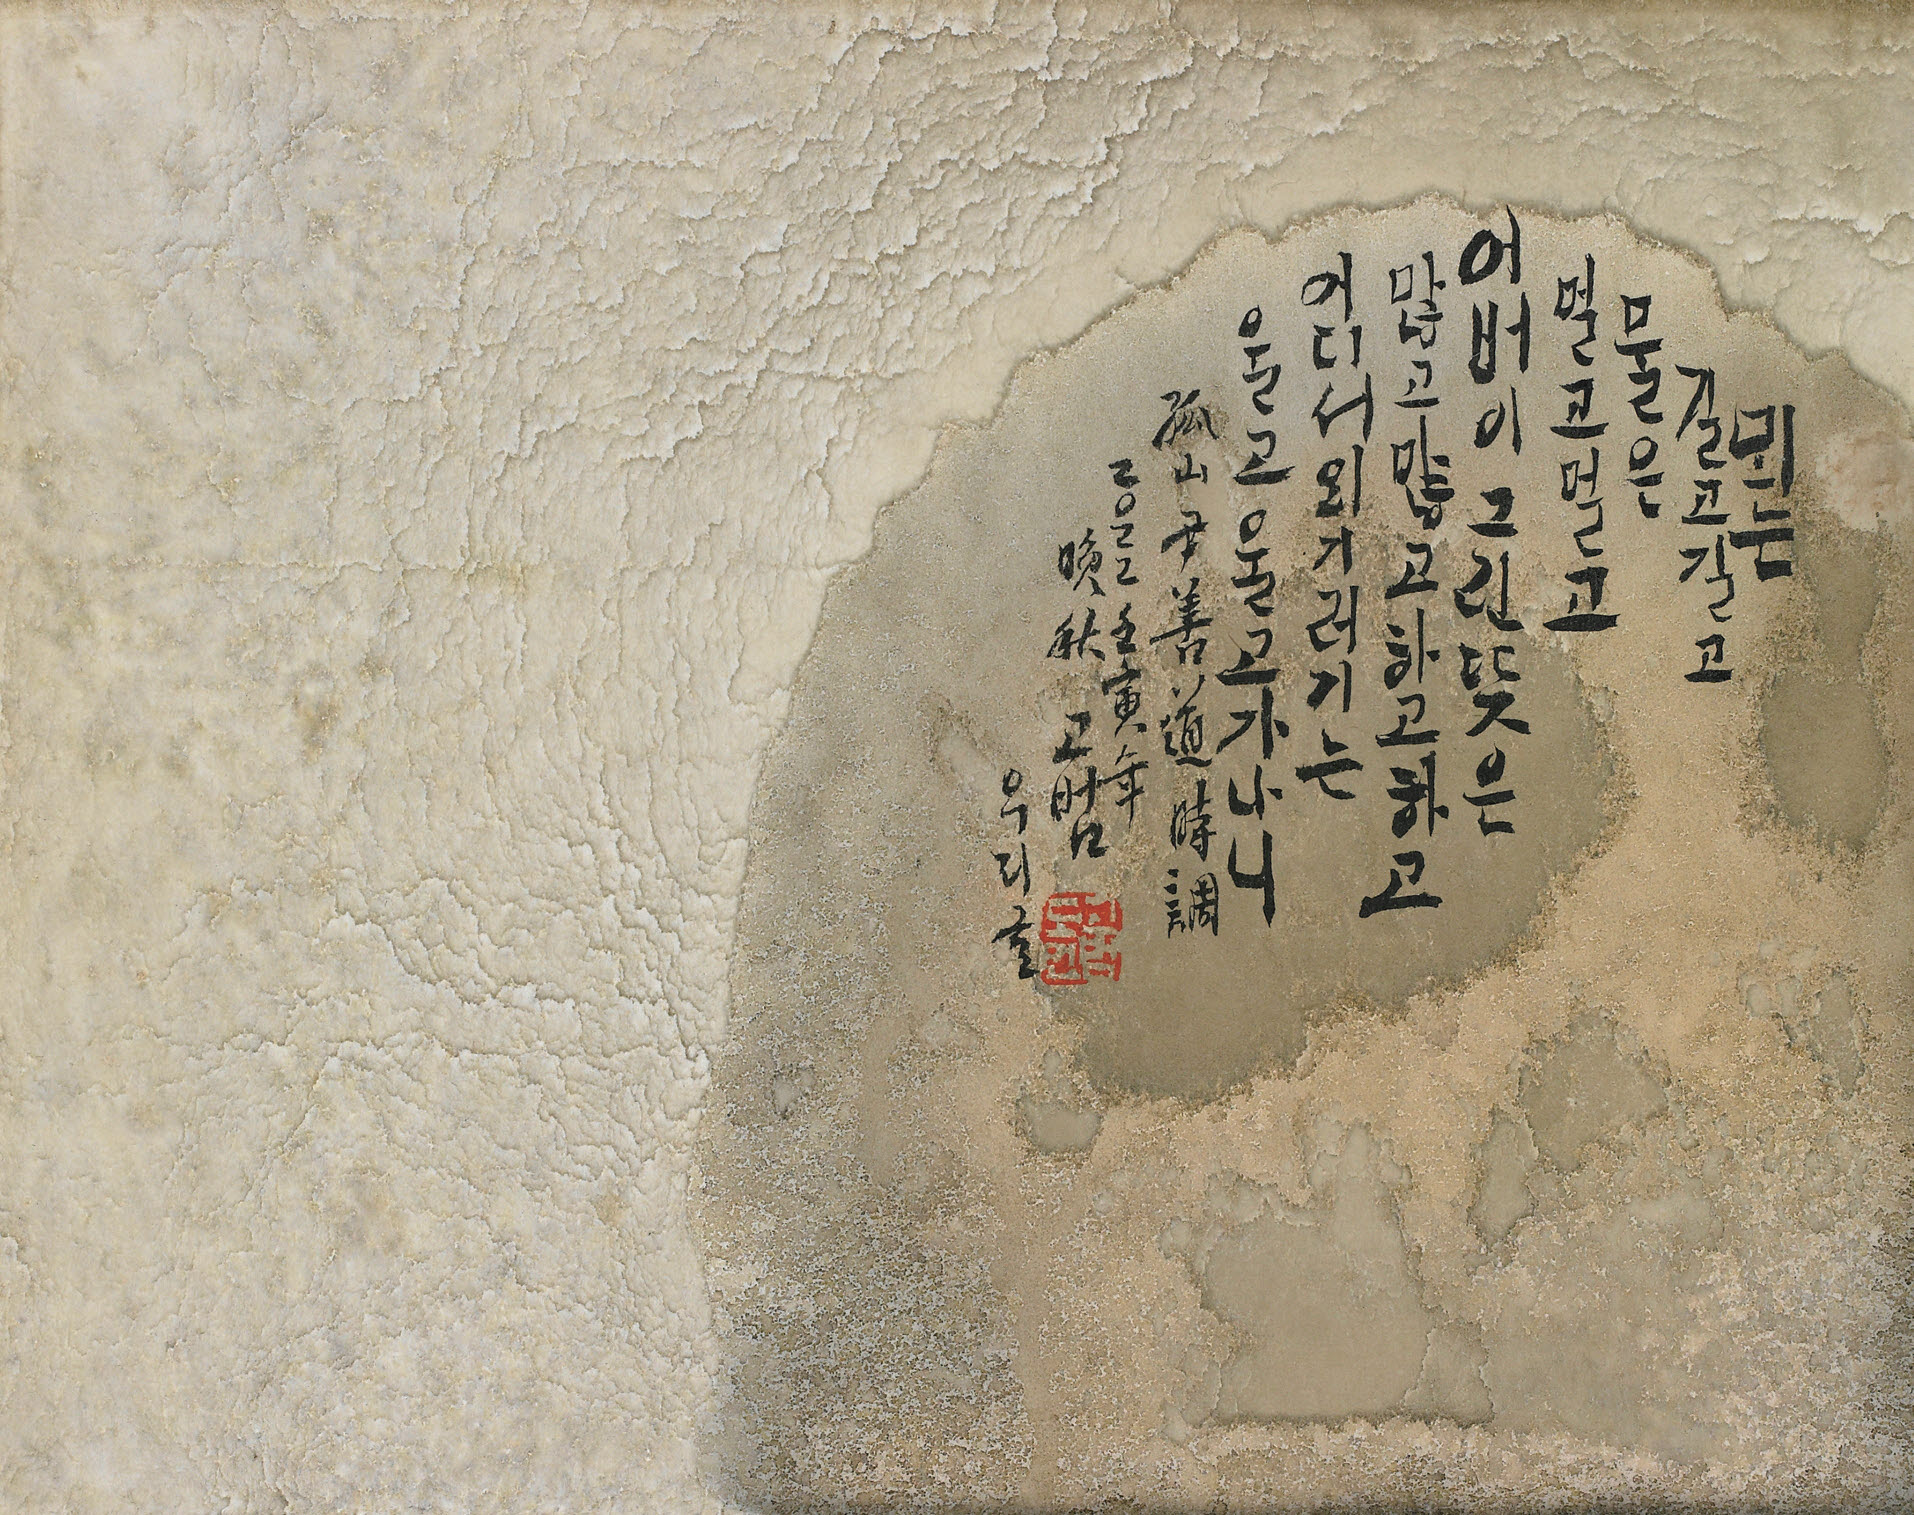 뫼는
길고길고
물은
멀고멀고
어버이그린뜻은
많고많고하고하고
어디서외기러기는
울고울고가나니
孤山尹善道時調
二〇二二壬寅年
晩秋고범
우리글